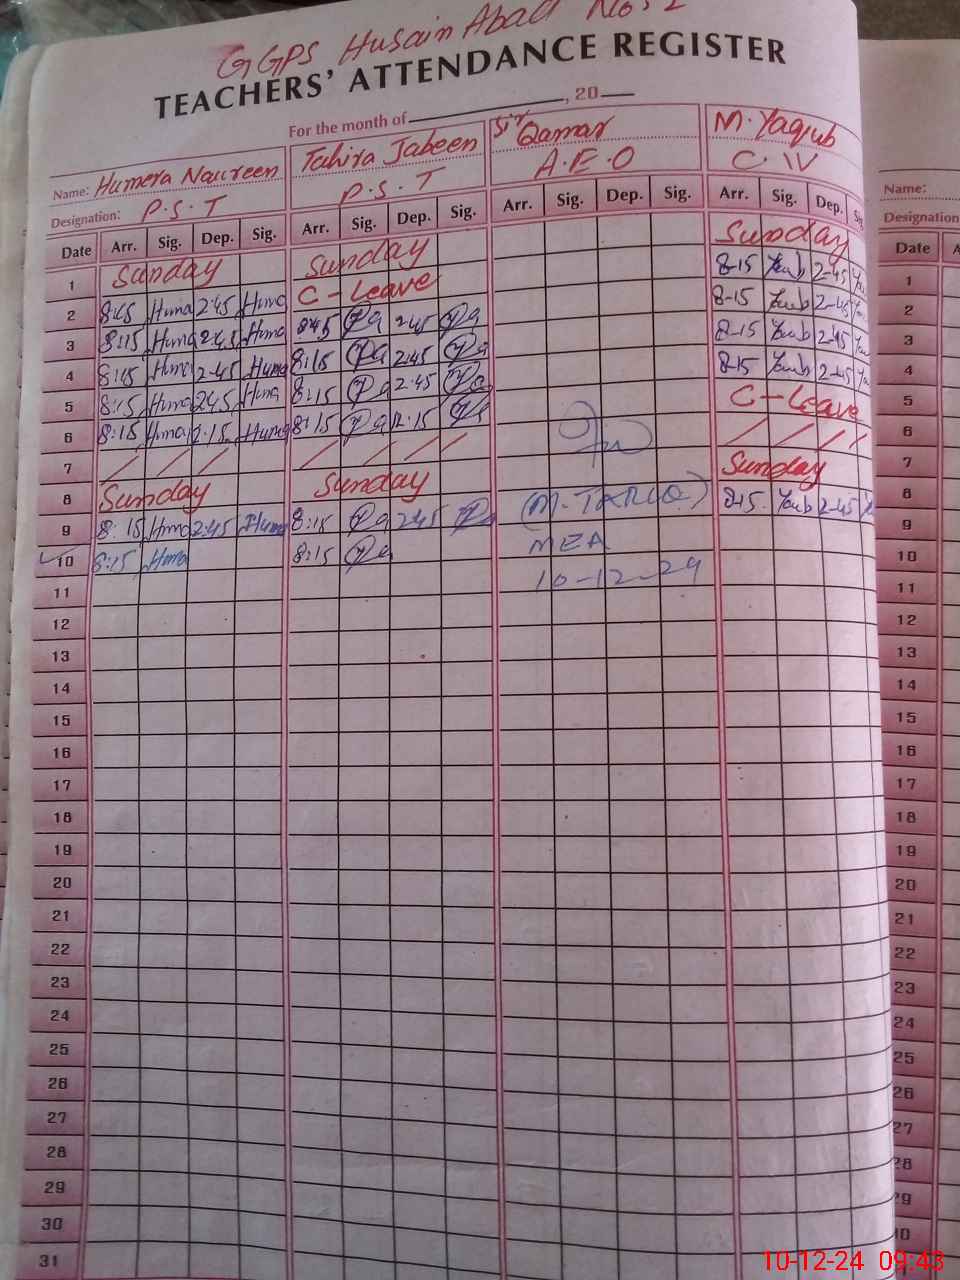 GGPS Husain Abad No. 2
TEACHERS' ATTENDANCE REGISTER
For the month of , 20
Name: Humera Naureen Tahira Jabeen Sir Qamar M. Yaqub
Designation: P.S.T P.S.T A.E.O C.IV
Name:
Designation
Date Arr. Sig. Dep. Sig. Arr. Sig. Dep. Sig. Arr. Sig. Dep. Sig. Arr. Sig. Dep. Date
1 Sunday Sunday Sunday 1
2 8:15 Huma 2:45 Huma C-Leave 8-15 Yaub 2-45 2
3 8:15 Huma 2:45 Huma 8:45 2:45 8-15 Yaub 2-45 3
4 8:15 Huma 2:45 Huma 8:15 2:45 8-15 Yaub 2-45 4
5 8:15 Huma 2:45 Huma 8:15 2:45 8-15 Yaub 2-45 5
6 8:15 Huma 12:15 Huma 8:15 12:15 C-Leave 6
7 / / / / / / / / / / / 7
8 Sunday Sunday Sunday 8
9 8:15 Huma 2:45 Huma 8:15 2:45 (M. TARIQ) 8-15 Yaub 2-45 9
10 8:15 Huma 8:15 MEA 10
11 10-12-24 11
12 12
13 13
14 14
15 15
16 16
17 17
18 18
19 19
20 20
21 21
22 22
23 23
24 24
25 25
26 26
27 27
28 28
29 29
30 30
31
10-12-24 09:43